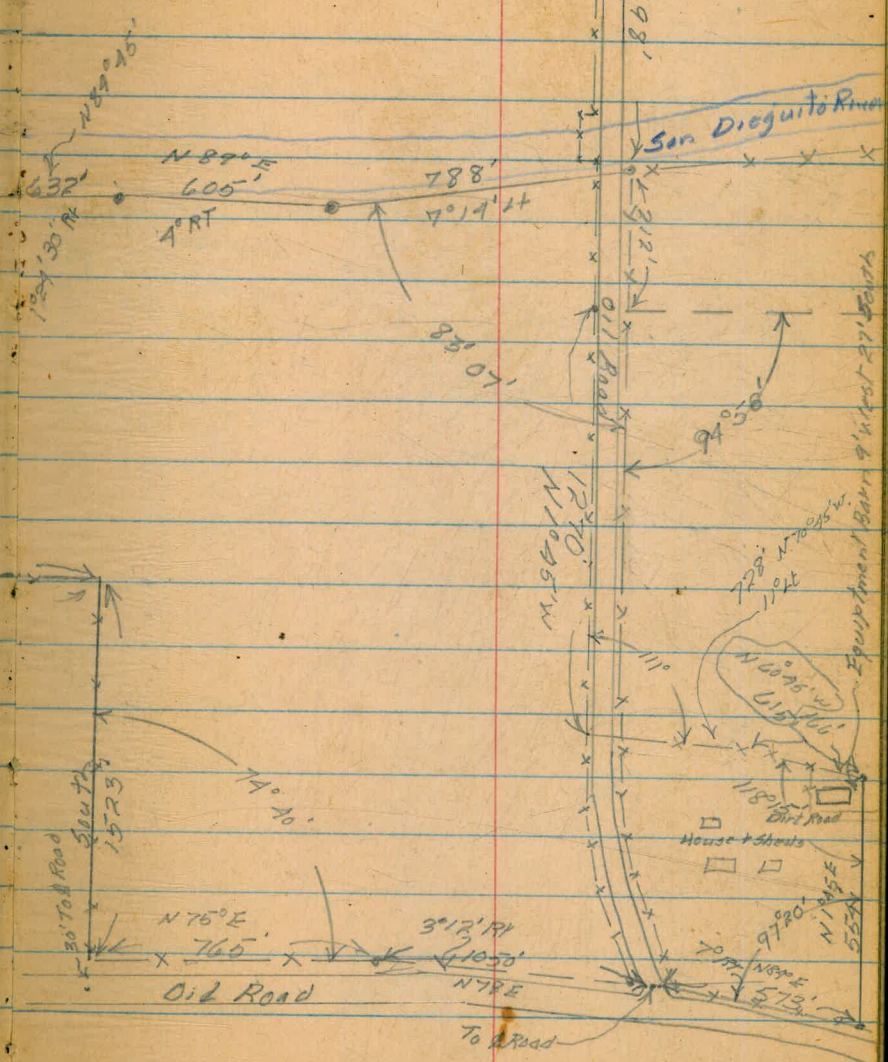 98'
San Dieguito River
N 84° 45'
N 89° E
632'
605'
788'
4° RT
7° 14' Lt
1° 24' 30" Rt
212'
Oil Road
83° 07'
94° 56'
Equiptment Barn 9' West 27' South
1270'
N 1° 45' W
728' N 70° 45' W.
11° Lt
111°
N 60° 45' W
615'
100'
118° 15'
Dirt Road
House & Sheds
South
1523'
74° 40'
30' To ₵ Road
N 75° E
765'
3° 12' Rt
1050'
N 78 E
Oil Road
To ₵ Road
7° Rt
97° 20'
N 84° E
573'
N 1° 45' E
554'